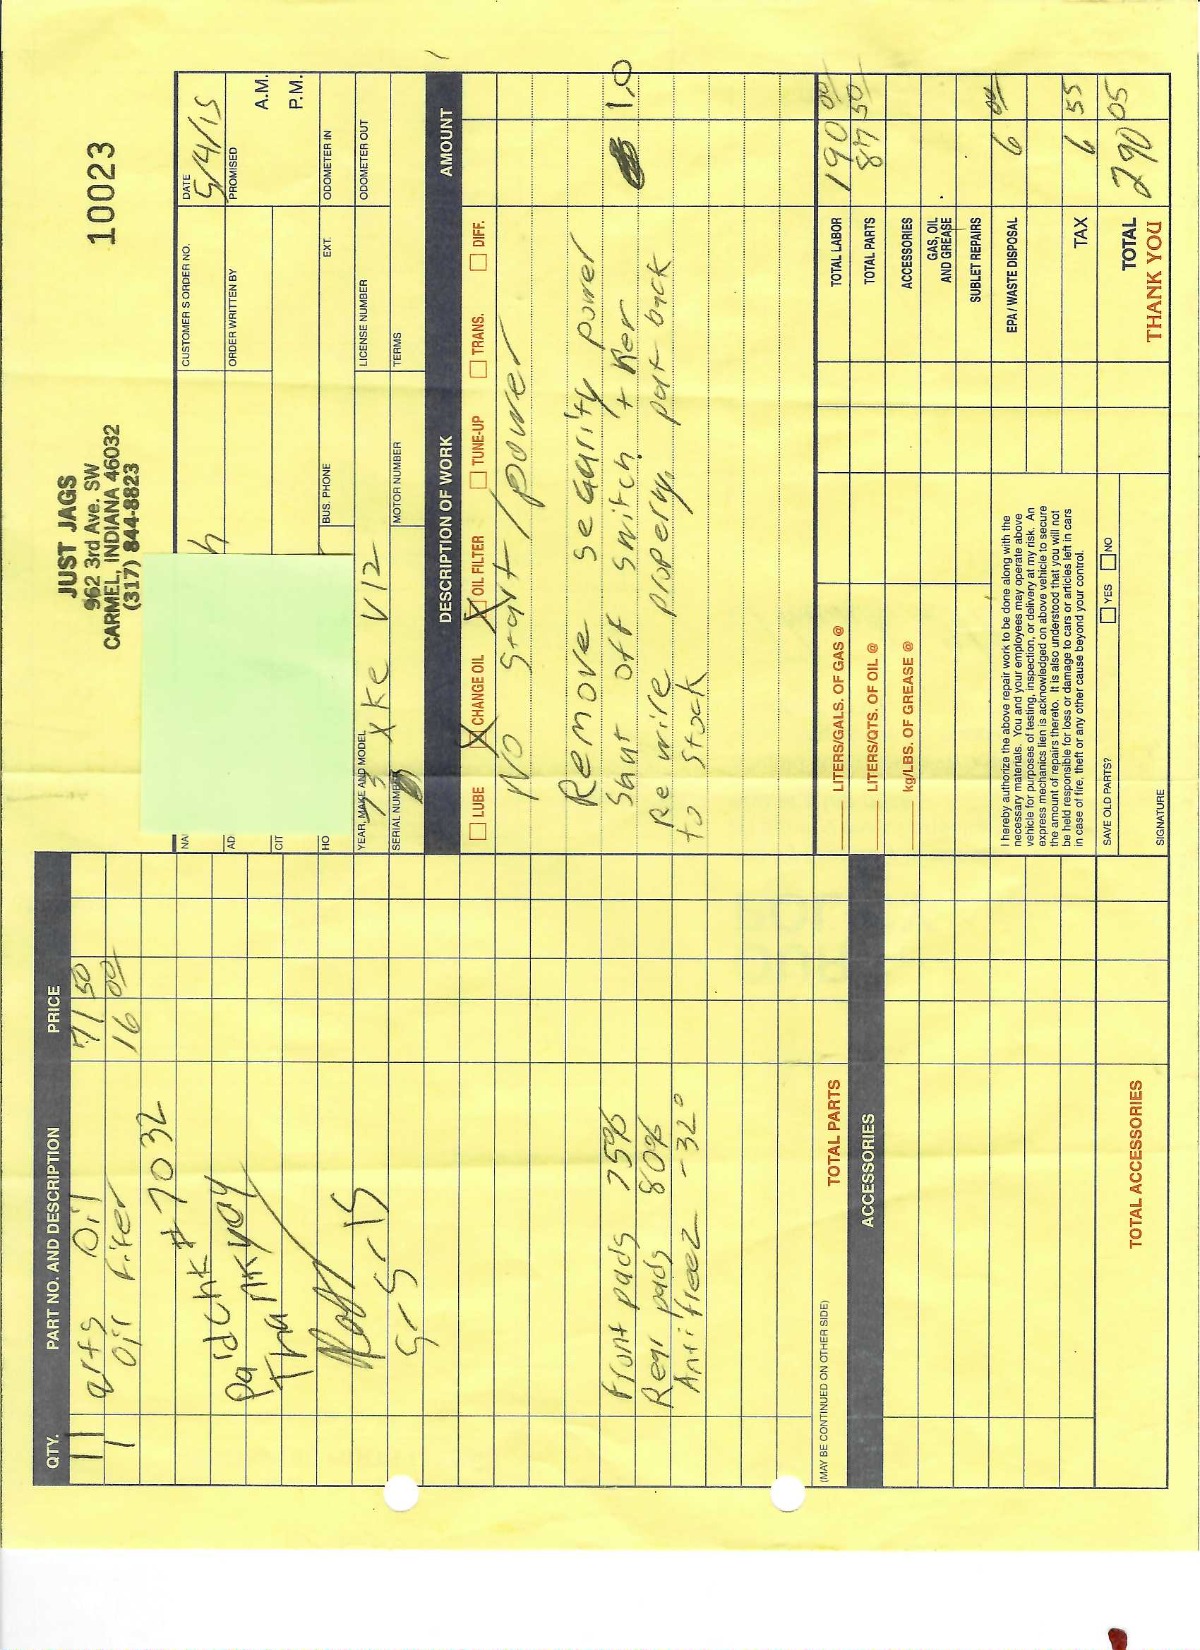 JUST JAGS
962 3rd Ave. SW
CARMEL, INDIANA 46032
(317) 844-8823
10023
QTY. PART NO. AND DESCRIPTION PRICE
11 qrts Oil 71 50
1 Oil Filter 16 00
Paid Chk # 7032
Thank you
5-5-15
Front pads 75%
Rear pads 80%
Antifreez -32°
(MAY BE CONTINUED ON OTHER SIDE) TOTAL PARTS
ACCESSORIES
TOTAL ACCESSORIES
CUSTOMER'S ORDER NO. DATE
5/4/15
ORDER WRITTEN BY PROMISED
A.M.
P.M.
BUS. PHONE EXT. ODOMETER IN
YEAR, MAKE AND MODEL LICENSE NUMBER ODOMETER OUT
73 XKE V12
SERIAL NUMBER MOTOR NUMBER TERMS
DESCRIPTION OF WORK AMOUNT
LUBE X CHANGE OIL X OIL FILTER TUNE-UP TRANS. DIFF.
No Start/power
Remove security power
Shut off switch + Rer 1.0
Re wire property put back
to Stock
LITERS/GALS. OF GAS @ TOTAL LABOR 190 00
LITERS/QTS. OF OIL @ TOTAL PARTS 87 50
kg/LBS. OF GREASE @ ACCESSORIES
GAS, OIL AND GREASE
SUBLET REPAIRS
EPA / WASTE DISPOSAL 6 00
TAX 6 55
TOTAL 290 05
THANK YOU
I hereby authorize the above repair work to be done along with the
necessary materials. You and your employees may operate above
vehicle for purposes of testing, inspection, or delivery at my risk. An
express mechanics lien is acknowledged on above vehicle to secure
the amount of repairs thereto. It is also understood that you will not
be held responsible for loss or damage to cars or articles left in cars
in case of fire, theft or any other cause beyond your control.
SAVE OLD PARTS? YES NO
SIGNATURE